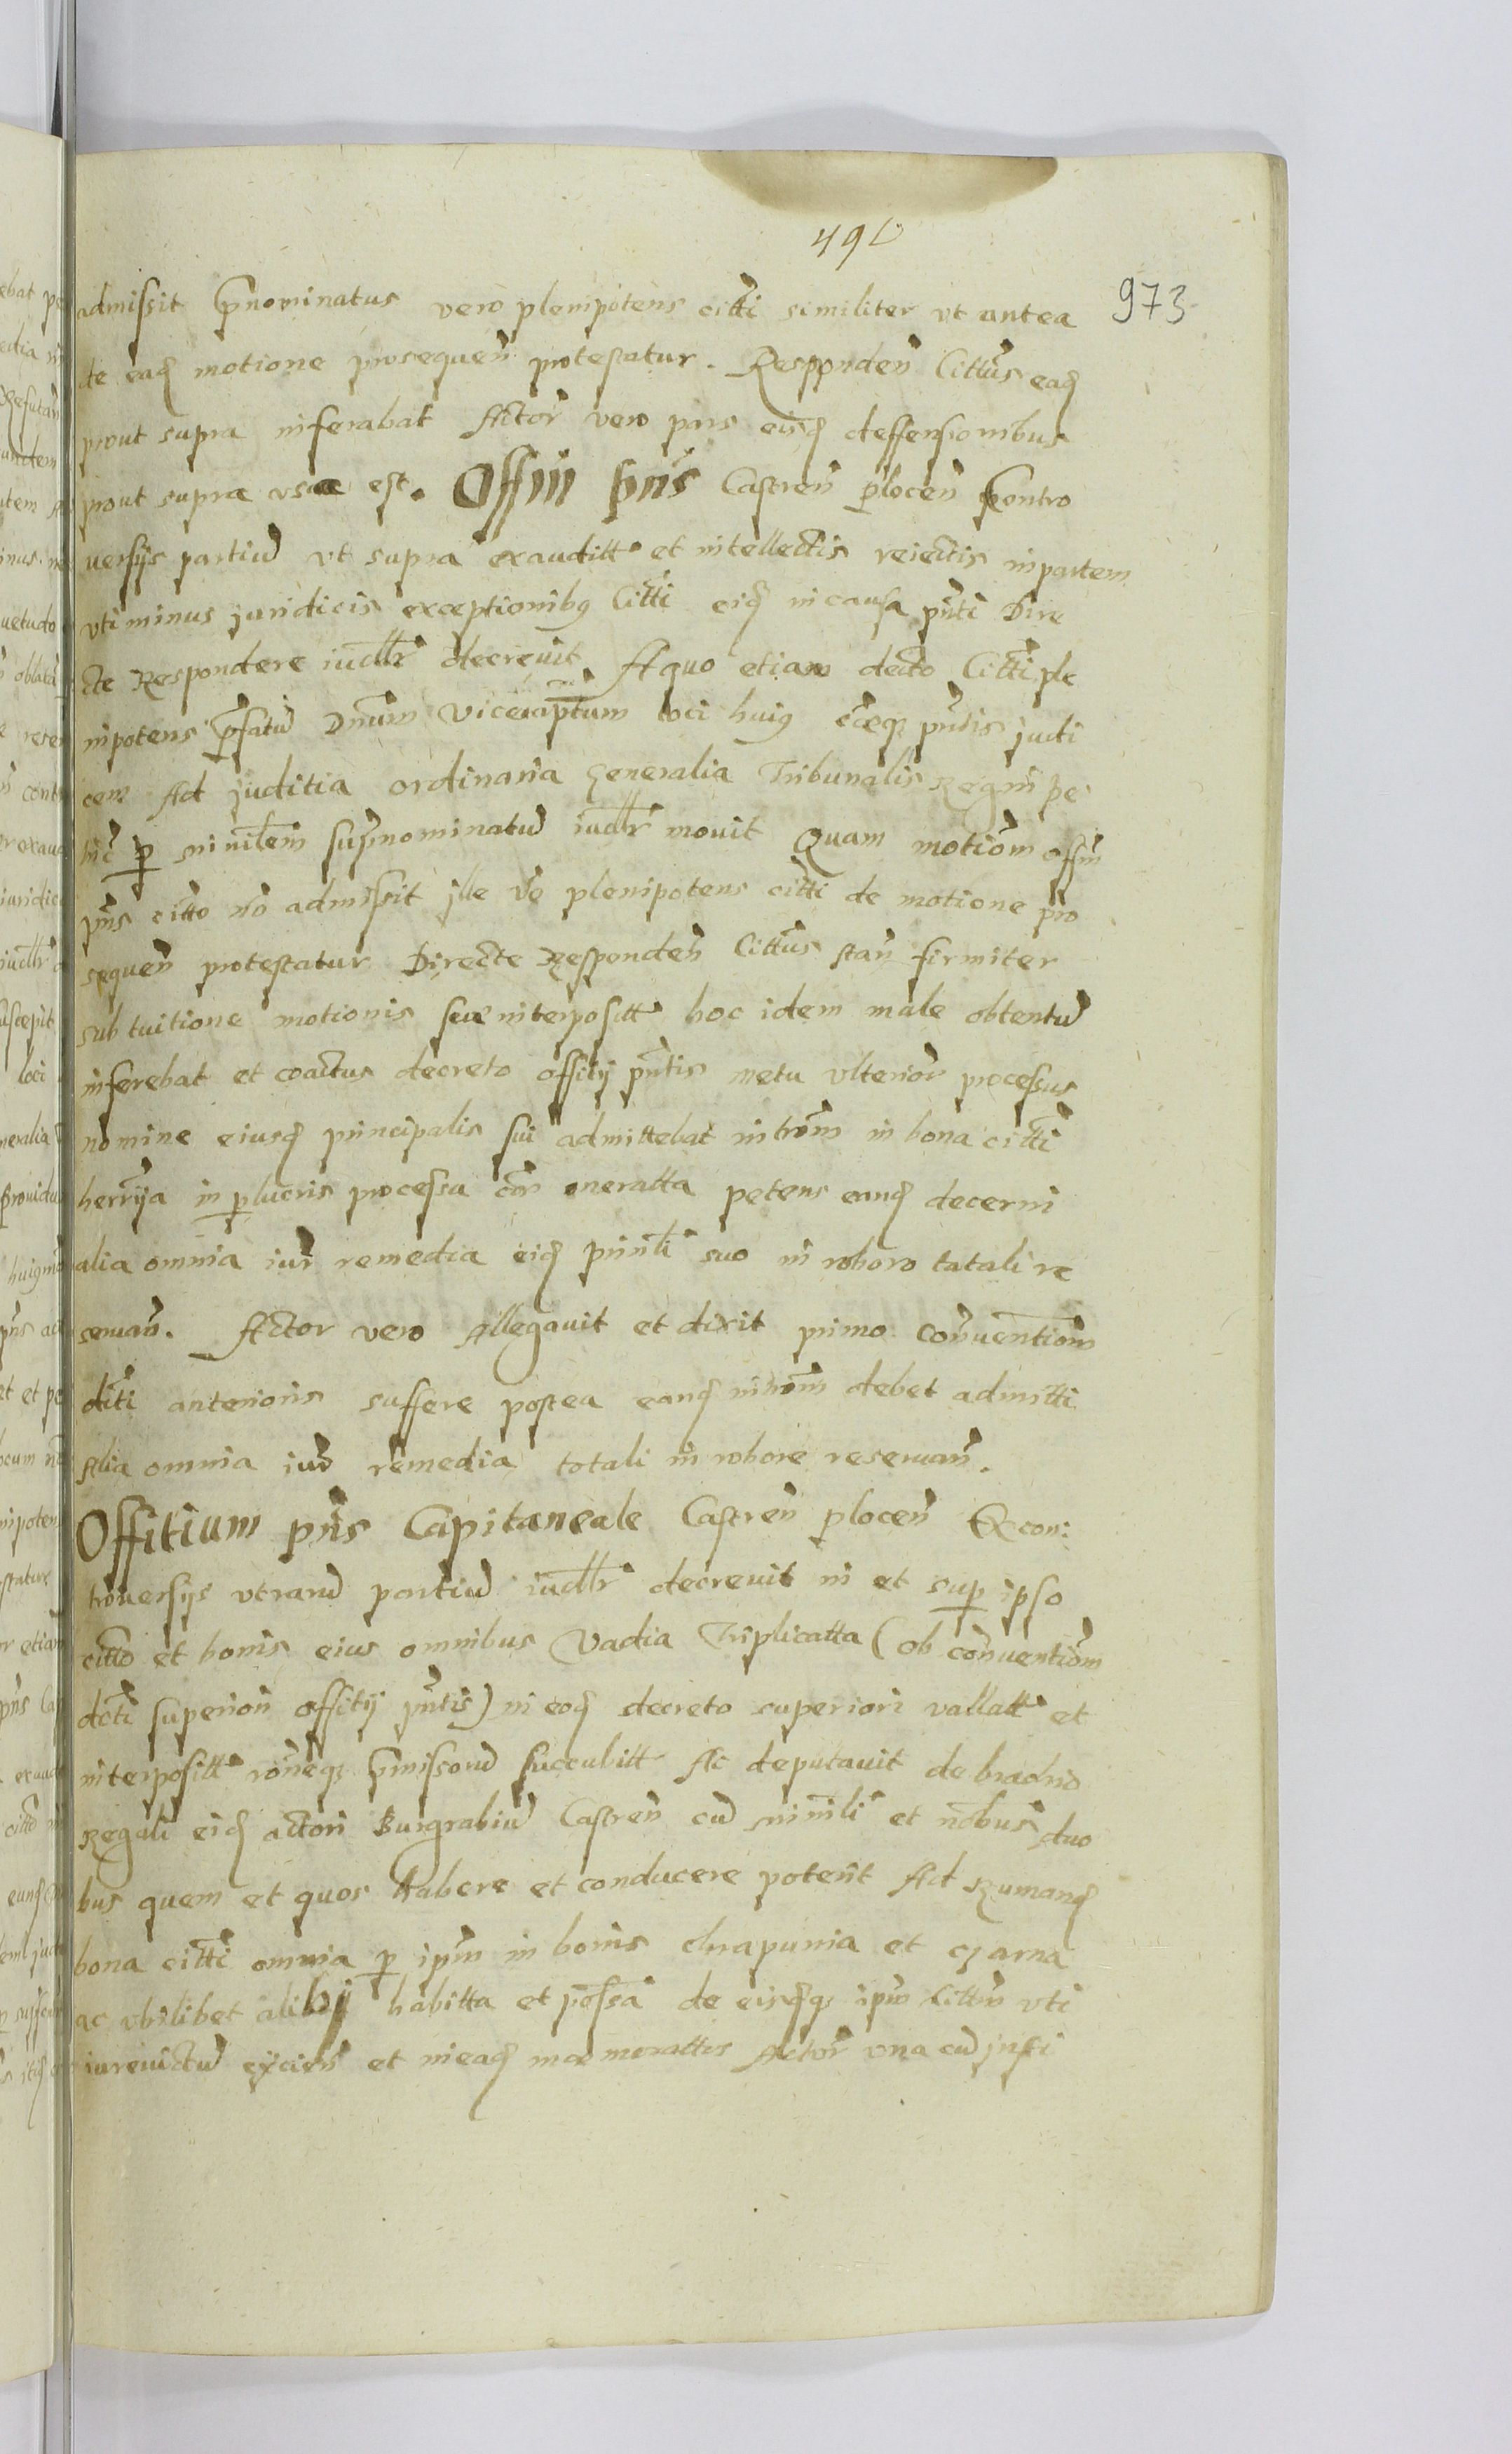 491
973
admissit pnominatus vero plenipotens citti similiter vt antea
de eadq motione prosequen protestatur. Responden Cittus eaq
prout supra inferabat Actor vero pars eisq deffensionibus
prout supra vsa est. Offm pns Castren plocen contro
uersijs partiu vt supra exauditt et intellectis reiectis in partem
vti minus juridicis exceptionibq Citti eiq in causa pnti Dire
cte Respondere iudlr decreuit A quo etiam decto Citti ple
nipotens pfatu Dnum Vicecaptum loci huiq ceqz pntis judi
cem Ad juditia ordinaria Generalia Tribunalis Regni pe
p minilem supnominatu iudlr mouit Quam motiom offm
pns citto no admissit ille vo plenipotens citti de motione pro
sequen protestatur Directe Responden Cittus stan firmiter
sub tuitione motionis sue interpositt hoc idem male obtentu
inferebat et coactus decreto offitij pntis metu vlterior processus
nomine eiusq principalis sui admittebat introm in bona citti
herrija in plucris processu con oneratta petens eanq decerni
alia omnia iur remedia eiq prinli suo in roboro tatali re
seruan. Actor vero Allegauit et dixit primo conuentiom
dicti anterioris suffere postea eanq introm debet admitti
Alia omnia iur remedia totali in robore reseruan.
Offitium pns Capitaneale Castren plocen Ex con:
trouersijs vtraru partiu iudlr decreuit in et sup ipso
citto et bonis eius omnibus Vadia Triplicatta (ob conuentiom
dcti superiori offitij pntis) in eoq decreto superiori vallatt et
interpositt roneqz pmissoru succubitt Ac deputauit de brachio
Regali eiq actori Burgrabiu Castren cu minili et nobus duo
bus quem et quos habere et conducere potent Ad Rumanq
bona citti omnia p ipm in bonis chrapunia et czarna
ac vbilibet alibij habitta et possa de eisqqz ipm Cittm vti
iureuictu eijcien et in eaq memorattos Actor vna cu justi